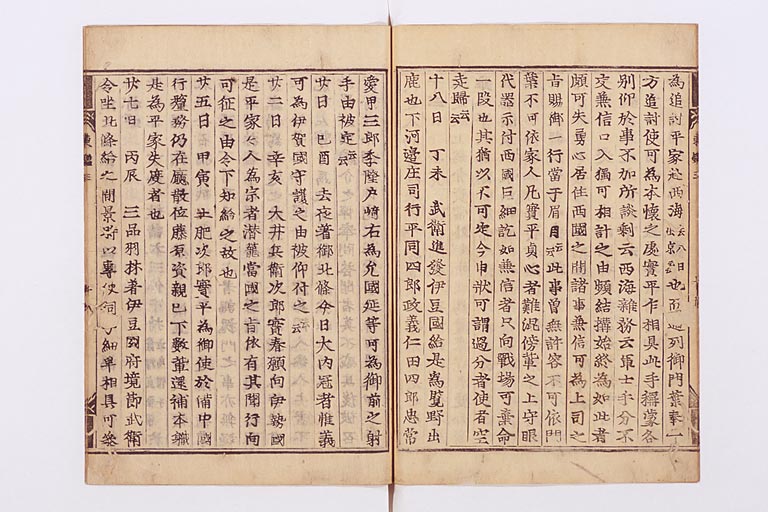 為追討平家赴西海去八日也出京云云適列御門葉奉一
方追討使可為本懐之處實平乍相具此手稱蒙各
別仰於事不加所談剰云西海雜務云軍士手分不
交兼信口入獨可相計之由頗結搆始終為如此者
頗可失勇心居住西國之間諸事兼信可為上司之
旨賜御一行當于眉目云云此事曾無許容不可依門
葉不可依家人凡實平貞心者難混傍輩之上守眼
代器示付西國巨細訖如兼信者只向戰場可棄命
一段也其猶以不可定今申狀可謂過分者使者空
走歸云云
十八日 丁未 武衛進發伊豆國給是為覽野出
鹿也下河邊庄司行平同四郎政義仁田四郎忠常
愛甲三郎季隆戸崎右馬允國延等可為御前之射
手由被定云云
廿日 己酉 去夜著御北條今日大内冠者惟義
可為伊賀國守護之由被仰付之云云
廿二日 辛亥 大井兵衛次郎實春顧向伊勢國
是平家々人為宗者潜籠當國之旨依有其聞行向
可征之由令下知給之故也
廿五日 甲寅 土肥次郎實平為御使於備中國
行釐務仍在廳散位藤原資親已下數輩還補本職
是為平家失度者也
廿七日 丙辰 三品羽林著伊豆國府境節武衛
令坐北條給之間景時以專使伺子細早相具可參